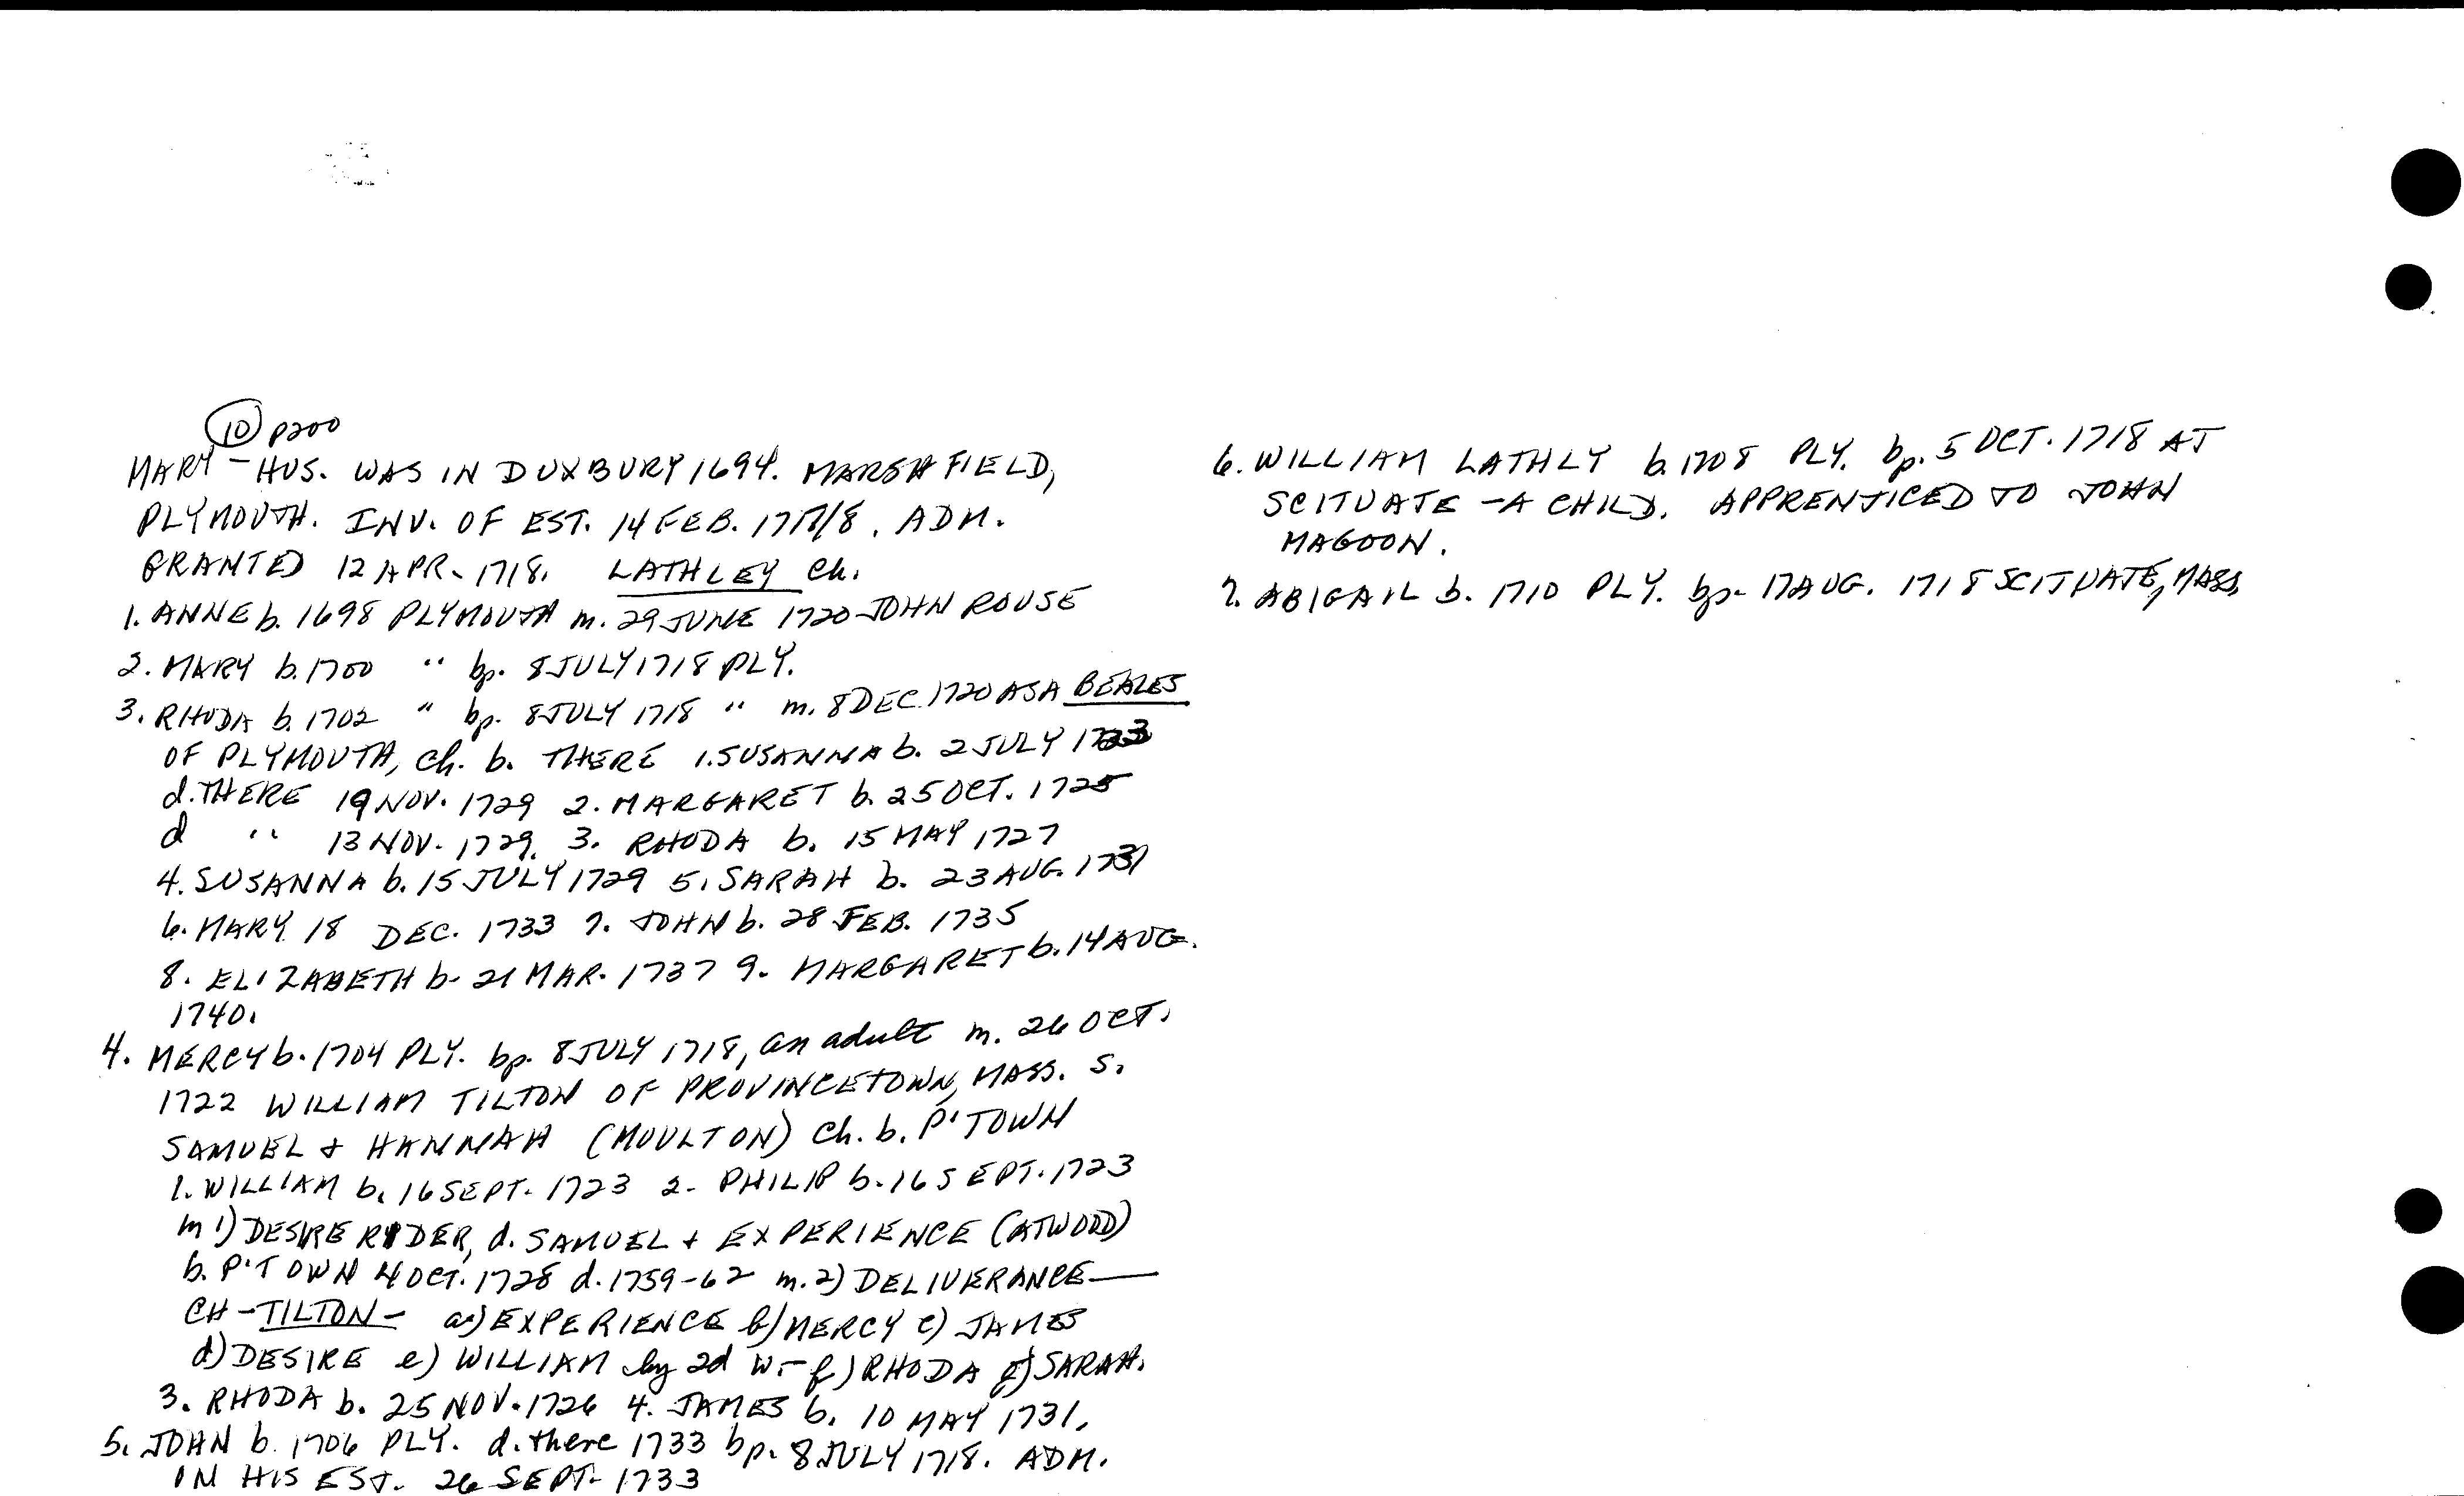 10 P200
MARY - HUS. WAS IN DUXBURY 1694. MARSHFIELD,
PLYMOUTH. INV. OF EST. 14 FEB. 1717/8. ADM.
GRANTED 12 APR. 1718. LATHLEY Ch.
1. ANNE b. 1698 PLYMOUTH m. 29 JUNE 1720 JOHN ROUSE
2. MARY b. 1700 " bp. 8 JULY 1718 PLY.
3. RHODA b. 1702 " bp. 8 JULY 1718 " m. 8 DEC. 1720 ASA BEALES
OF PLYMOUTH, Ch. b. THERE 1. SUSANNA b. 2 JULY 1723
d. THERE 19 NOV. 1729 2. MARGARET b. 25 OCT. 1725
d " 13 NOV. 1729. 3. RHODA b. 15 MAY 1727
4. SUSANNA b. 15 JULY 1729 5. SARAH b. 23 AUG. 1731
6. MARY 18 DEC. 1733 7. JOHN b. 28 FEB. 1735
8. ELIZABETH b. 21 MAR. 1737 9. MARGARET b. 14 AUG.
1740.
4. MERCY b. 1704 PLY. bp. 8 JULY 1718, an adult m. 26 OCT.
1722 WILLIAM TILTON OF PROVINCETOWN, MASS. S.
SAMUEL + HANNAH (MOULTON) Ch. b. P'TOWN
1. WILLIAM b. 16 SEPT. 1723 2. PHILIP b. 16 SEPT. 1723
m 1) DESIRE RYDER, d. SAMUEL + EXPERIENCE (ATWOOD)
b. P'TOWN 4 OCT. 1728 d. 1759-62 m. 2) DELIVERANCE —
CH - TILTON - a) EXPERIENCE b) MERCY c) JAMES
d) DESIRE e) WILLIAM by 2d W. - f) RHODA g) SARAH.
3. RHODA b. 25 NOV. 1726 4. JAMES b. 10 MAY 1731.
5. JOHN b. 1706 PLY. d. there 1733 bp. 8 JULY 1718. ADM.
ON HIS EST. 26 SEPT. 1733
6. WILLIAM LATHLY b. 1708 PLY. bp. 5 OCT. 1718 AT
SCITUATE - A CHILD. APPRENTICED TO JOHN
MAGOON.
7. ABIGAIL b. 1710 PLY. bp. 17 AUG. 1718 SCITUATE, MASS.